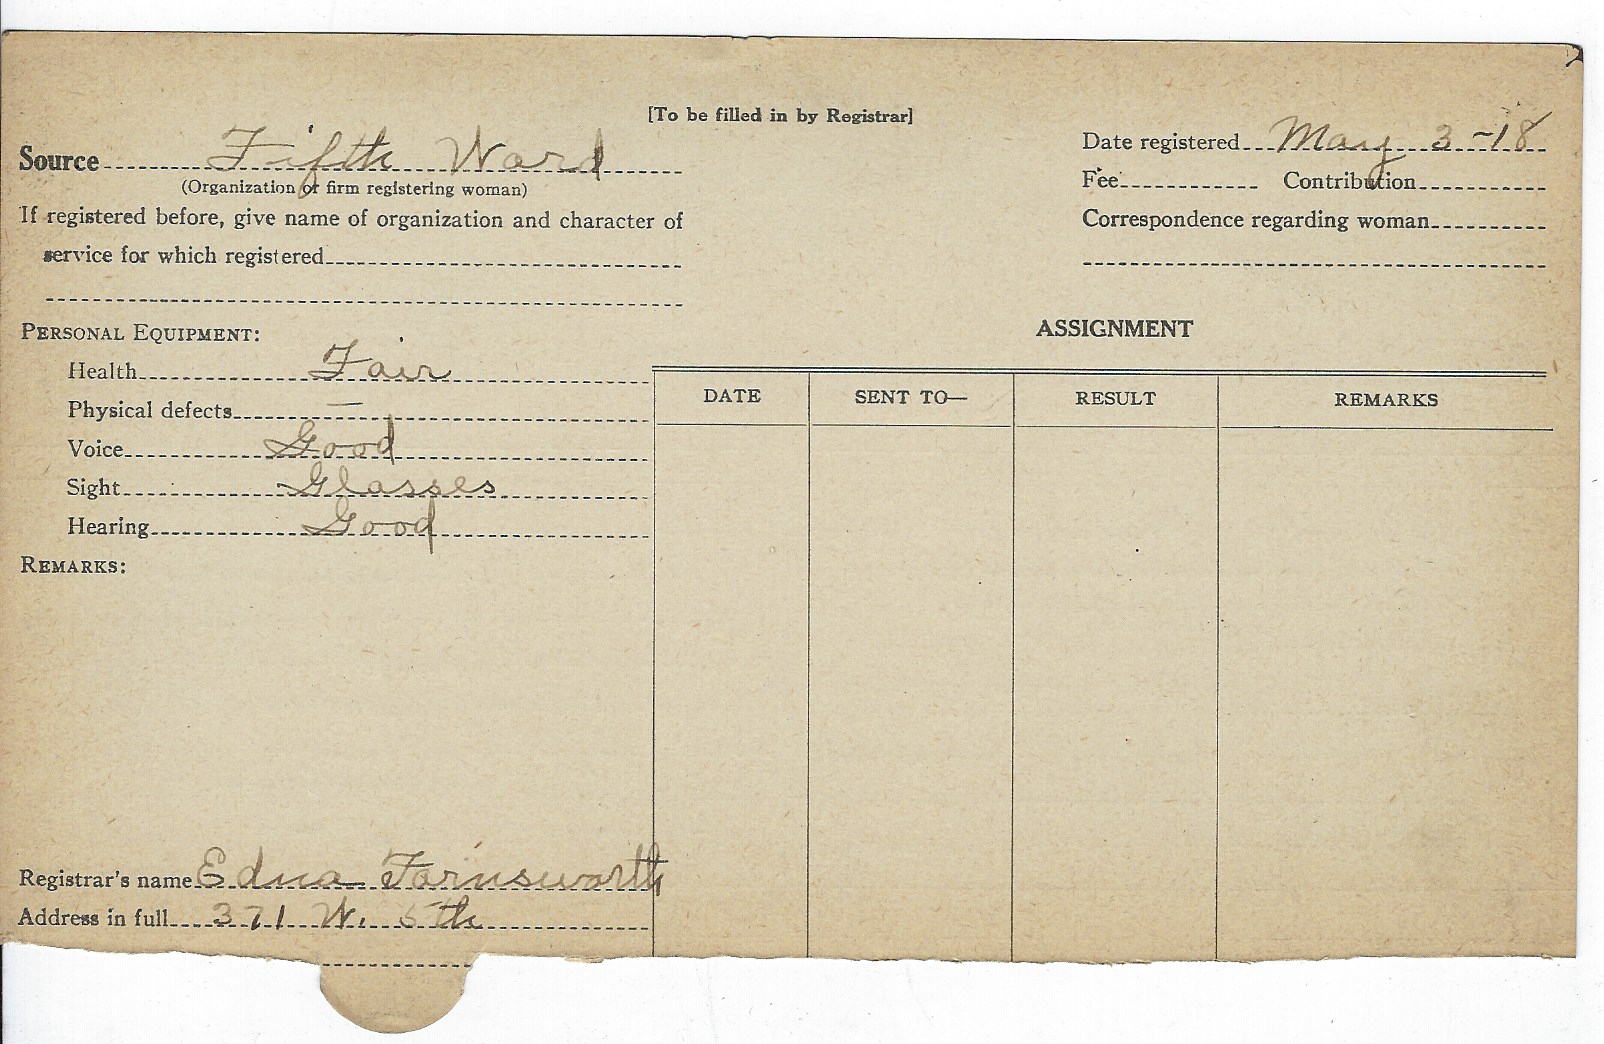 [To be filled in by Registrar]
Source Fifth Ward
(Organization or firm registering woman)
Date registered May 3-18
Fee Contribution
If registered before, give name of organization and character of
service for which registered
Correspondence regarding woman
PERSONAL EQUIPMENT:
ASSIGNMENT
Health Fair
Physical defects —
Voice Good
Sight Glasses
Hearing Good
DATE SENT TO— RESULT REMARKS
REMARKS:
Registrar's name Edna Farnsworth
Address in full 371 W. 5th